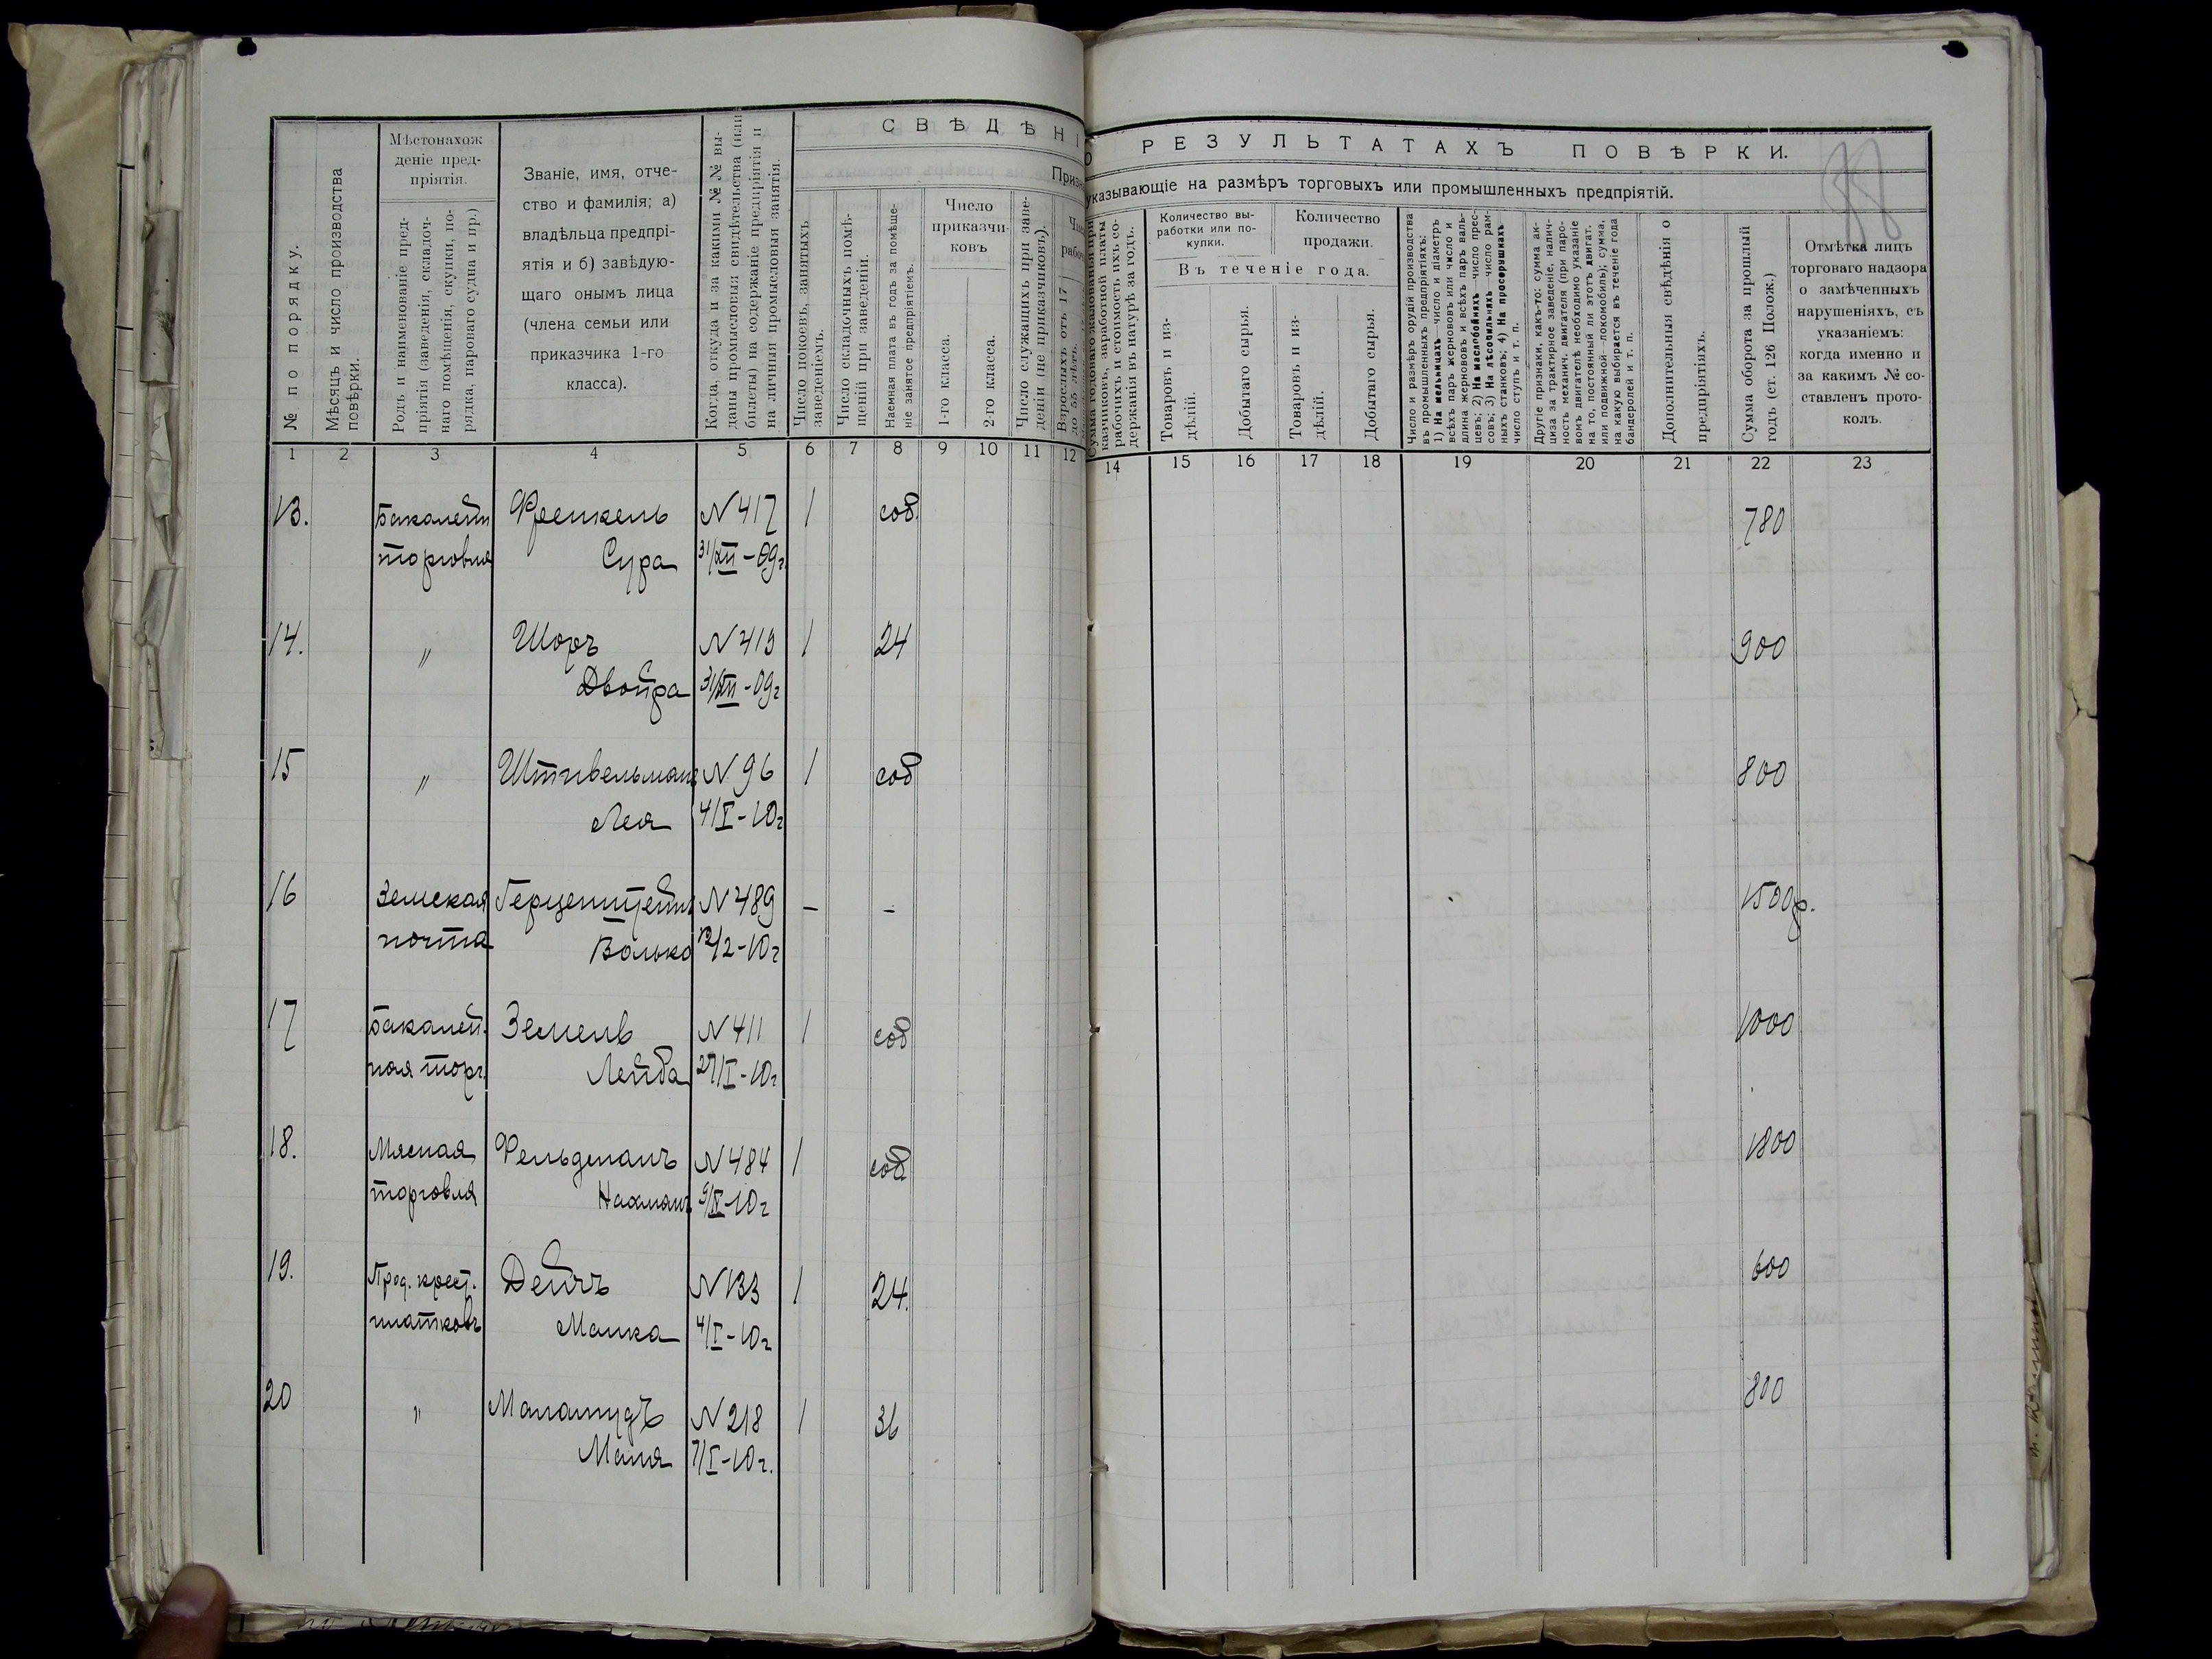 СВѢДѢНІ
О РЕЗУЛЬТАТАХЪ ПОВѢРКИ.
указывающіе на размѣръ торговыхъ или промышленныхъ предпріятій.
№ по порядку.
Мѣсяцъ и число производства
повѣрки.
Мѣстонахож
деніе пред-
пріятія.
Родъ и наименованіе пред-
пріятія (заведенія, складоч-
наго помѣщенія, скупки, по-
рядка, пароваго судна и пр.)
Званіе, имя, отче-
ство и фамилія; а)
владѣльца предпрі-
ятія и б) завѣдую-
щаго онымъ лица
(члена семьи или
приказчика 1-го
класса).
Когда, откуда и за какими №№ вы-
даны промысловыя свидѣтельства (или
билеты) на содержаніе предпріятія и
на личныя промысловыя занятія.
Число покоевъ, занятыхъ
заведеніемъ.
Число складочныхъ помѣ-
щеній при заведеніи.
Наемная плата въ годъ за помѣще-
ніе занятое предпріятіемъ.
Число
приказчи-
ковъ
1-го класса.
2-го класса.
Число служащихъ при заве-
деніи (не приказчиковъ).
Взрослыхъ отъ 17
до 55 лѣтъ.
Сумма годоваго жалованья при-
казчиковъ, заработной платы
рабочихъ и стоимость ихъ со-
держанія въ натурѣ за годъ.
Количество вы-
работки или по-
купки.
Количество
продажи.
Въ теченіе года.
Товаровъ и из-
дѣлій.
Добытаго сырья.
Товаровъ и из-
дѣлій.
Добытаго сырья.
Число и размѣръ орудій производства
въ промышленныхъ предпріятіяхъ:
1) На мельницахъ—число и діаметръ
всѣхъ паръ жернововъ или число и
длина жернововъ и всѣхъ паръ валь-
цевъ; 2) На маслобойняхъ—число прес-
совъ; 3) На лѣсопильняхъ—число рам-
ныхъ станковъ; 4) На просорушкахъ
число ступъ и т. п.
Другіе признаки, какъ-то: сумма ак-
циза за трактирное заведеніе, налич-
ность механич. двигателя (при паро-
вомъ двигателѣ необходимо указаніе
на то, постоянный ли этотъ двигат.
или подвижной—локомобиль); сумма,
на какую выбирается въ теченіе года
бандеролей и т. п.
Дополнительныя свѣдѣнія о
предпріятіяхъ.
Сумма оборота за прошлый
годъ (ст. 126 Полож.)
Отмѣтка лицъ
торговаго надзора
о замѣченныхъ
нарушеніяхъ, съ
указаніемъ:
когда именно и
за какимъ № со-
ставленъ прото-
колъ.
1 2 3 4 5 6 7 8 9 10 11 12 14 15 16 17 18 19 20 21 22 23
13. Бакалейн Френкель N 417 1 соб. 780
торговля Сура 31/XII-09г.
14. " Шоръ N 419 1 24 900
Двойра 31/XII-09г
15 " Штивельманъ N 96 1 соб 800
Лея 4/I-10г
16 Земская Герценштейнъ N 489 – – 1500р.
почта Волько 12/2-10г
17 Бакалей- Земель N 411 1 соб 1000
ная торг. Лейба 27/I-10г
18. Мясная Фельдманъ N 484 1 соб 1800
торговля Нахманъ 9/II-10г
19. Прод. крест. Дейчъ N 133 1 24. 600
платковъ Малка 4/I-10г
20 " Маламудъ N 218 1 36 800
Маня 7/I-10г.